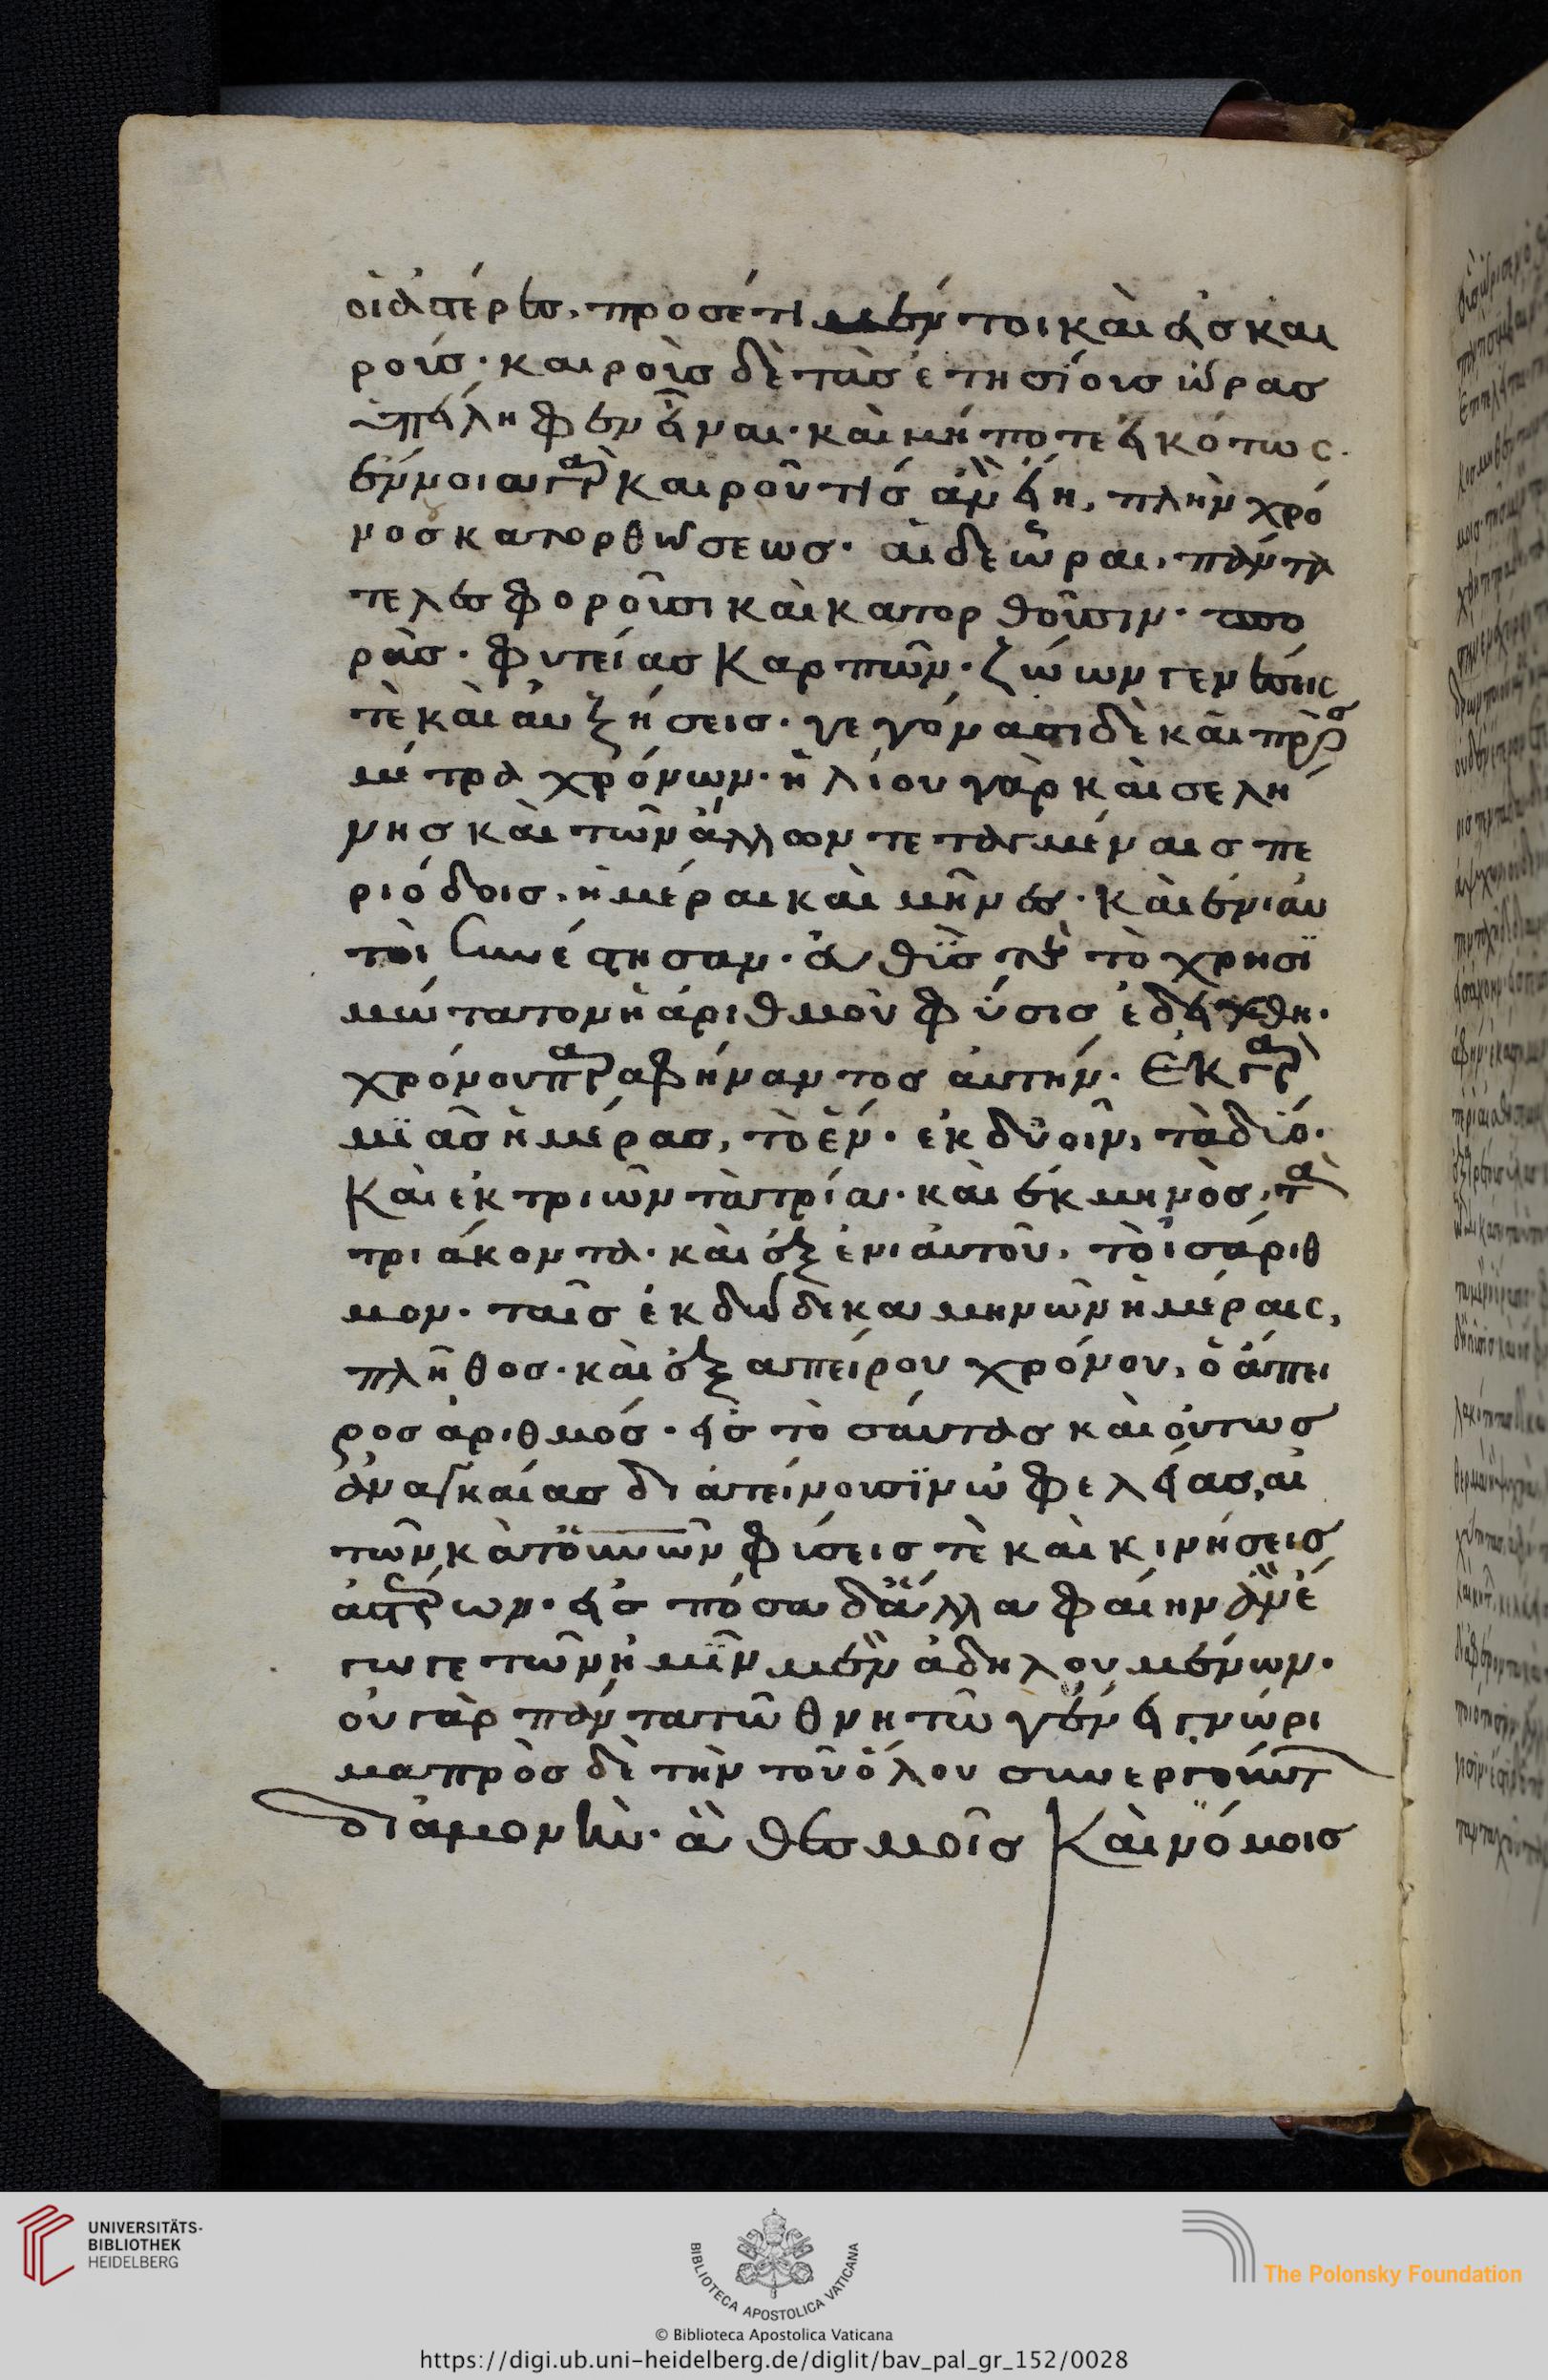 οἱ ἀστέρες, προσέτι μέν τοι καὶ εἰς και
ρούς· καιροὺς δὲ τὰς ἐτησίους ὥρας
ὑπείληφεν εἶναι· καὶ μήποτε εἰκότως.
ἔννοια γὰρ καιροῦ τίς ἂν εἴη, πλὴν χρό
νος κατορθώσεως· αἱ δὲ ὧραι, πάντα
τελεσφοροῦσι καὶ κατορθοῦσιν· σπο
ρὰς· φυτείας καρπῶν· ζώων γενέσεις
τὲ καὶ αυξήσεις· γεγόνασι δὲ καὶ πρὸς
μέτρα χρόνων· ἡλίου γὰρ καὶ σελή
νης καὶ τῶν ἄλλων τεταγμέναις πε
ριόδοις, ἡμέραι καὶ μῆνες· καὶ ἐνιαυ
τοὶ συνέστησαν· εὐθὺς τὲ τὸ χρησϊ
μώτατον ἡ ἀριθμοῦ φύσις ἐδείχθη·
χρόνου παραφήναντος ἀυτήν· Ἐκ γὰρ
μϊᾶς ἡμέρας, τὸ ἕν· ἐκ δυοῖν, τὰ δύο·
Καὶ ἐκ τριῶν τὰ τρία· καὶ ἐκ μηνὸς, τὰ
τριάκοντα· καὶ ἐξ ἐνιἀυτοῦ, τὸ ἰσάριθ
μον· ταῖς ἐκ δώδεκα μηνῶν ἡμέραις,
πλῆθος· καὶ ἐξ απείρου χρόνου, ὁ ἄπει
ρος ἀριθμός· εἰς τοσάυτας καὶ όυτως
ἀναγκαίας διατείνουσϊν ὠφελείας, αἱ
τῶν κατ' οὐρανῶν φύσεις τὲ καὶ κινήσεις
ἀστέρων· εἰς πόσα δ' ἄλλα φαίην ἂν ἔ
γωγε τῶν ἡμῖν μὲν ἀδηλουμένων·
οὐ γὰρ πάντα τῶ θνητῶ γένει γνώρι
μα πρὸς δὲ τὴν τοῦ ὅλου συνεργούντ
διαμονὴν· ἃ θεσμοῖς Καὶ νόμοις
UNIVERSITÄTS-
BIBLIOTHEK
HEIDELBERG
BIBLIOTECA APOSTOLICA VATICANA
The Polonsky Foundation
© Biblioteca Apostolica Vaticana
https://digi.ub.uni-heidelberg.de/diglit/bav_pal_gr_152/0028